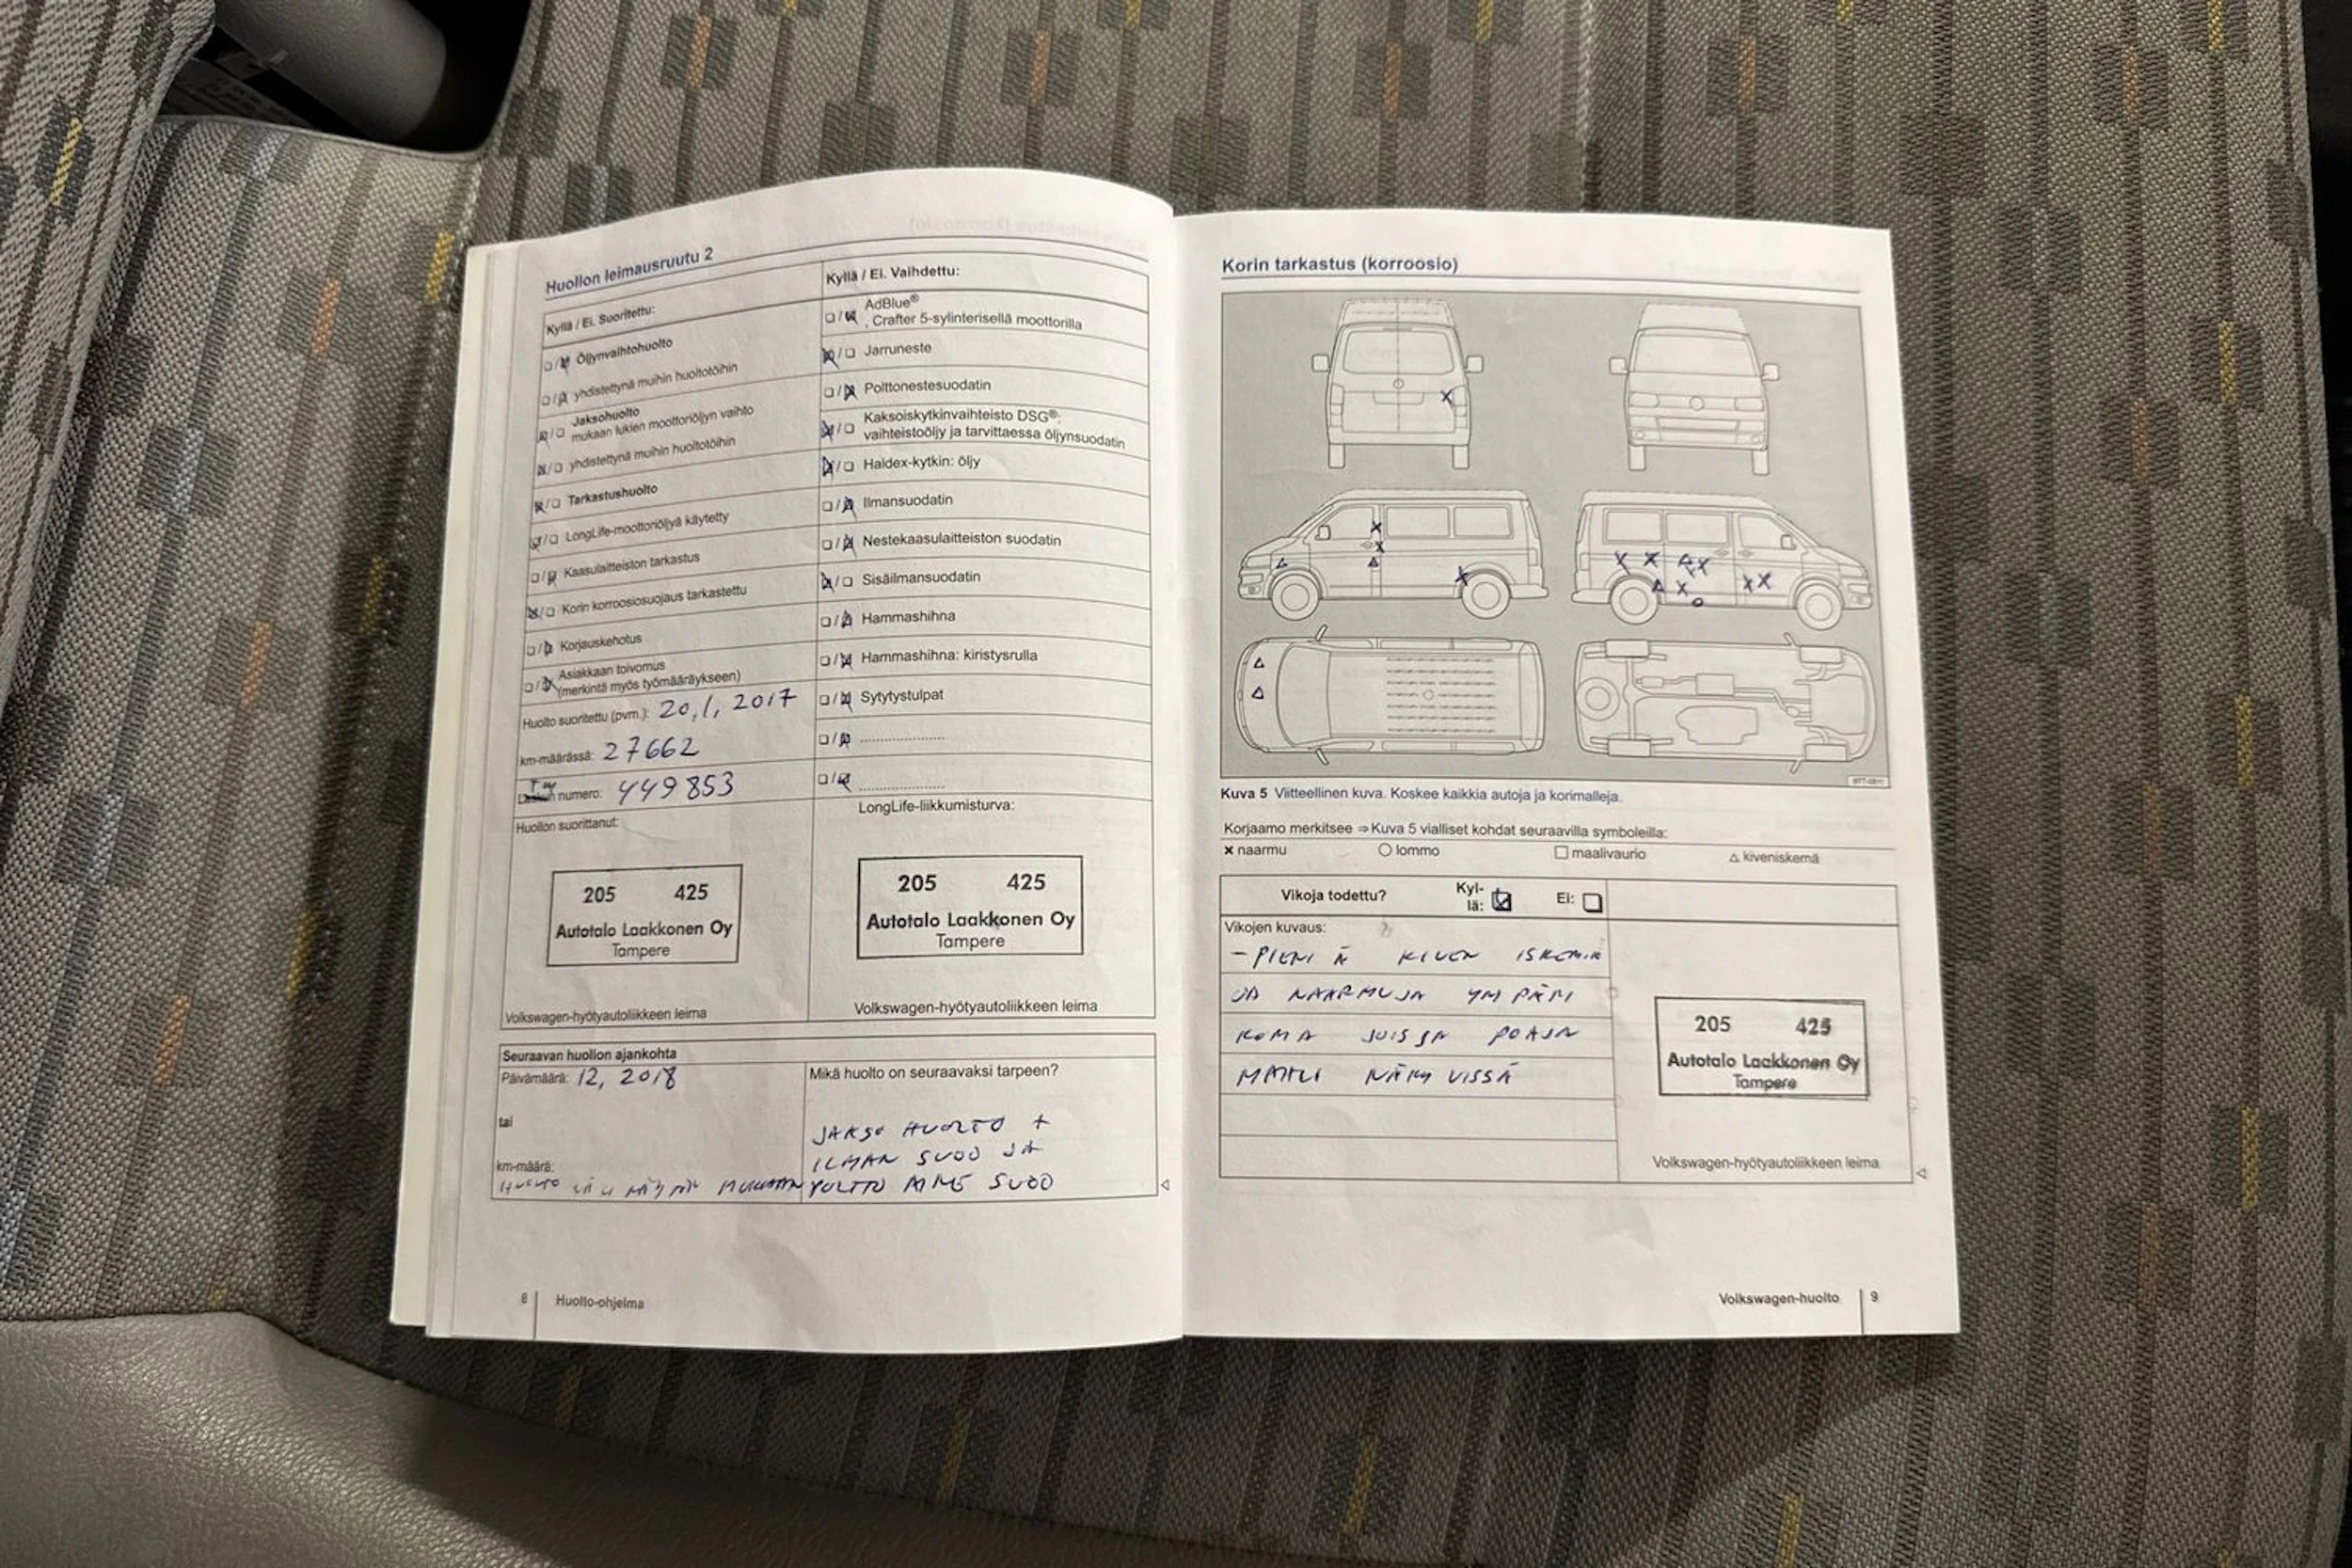 Huollon leimausruutu 2
Kyllä / Ei. Suoritettu:
Öljynvaihtohuolto
yhdistettynä muihin huoltotöihin
Jaksohuolto
mukaan lukien moottoriöljyn vaihto
yhdistettynä muihin huoltotöihin
Tarkastushuolto
LongLife-moottoriöljyä käytetty
Kaasulaitteiston tarkastus
Korin korroosiosuojaus tarkastettu
Korjauskehotus
Asiakkaan toivomus
(merkintä myös työmääräykseen)
Huolto suoritettu (pvm.): 20,1, 2017
km-määrässä: 27662
numero: 449853
Huollon suorittanut:
205 425
Autotalo Laakkonen Oy
Tampere
Volkswagen-hyötyautoliikkeen leima
Kyllä / Ei. Vaihdettu:
AdBlue®
, Crafter 5-sylinterisellä moottorilla
Jarruneste
Polttonestesuodatin
Kaksoiskytkinvaihteisto DSG®:
vaihteistoöljy ja tarvittaessa öljynsuodatin
Haldex-kytkin: öljy
Ilmansuodatin
Nestekaasulaitteiston suodatin
Sisäilmansuodatin
Hammashihna
Hammashihna: kiristysrulla
Sytytystulpat
LongLife-liikkumisturva:
205 425
Autotalo Laakkonen Oy
Tampere
Volkswagen-hyötyautoliikkeen leima
Seuraavan huollon ajankohta
Päivämäärä: 12, 2018
tai
km-määrä:
HUOLTO MUKAAN
Mikä huolto on seuraavaksi tarpeen?
JAKSO HUOLTO +
ILMAN SUOD JA
POLTTO AINE SUOD
8 Huolto-ohjelma
Korin tarkastus (korroosio)
Kuva 5 Viitteellinen kuva. Koskee kaikkia autoja ja korimalleja.
Korjaamo merkitsee ⇒ Kuva 5 vialliset kohdat seuraavilla symboleilla:
× naarmu ○ lommo □ maalivaurio △ kiveniskemä
Vikoja todettu? Kyl-
lä: Ei:
Vikojen kuvaus:
- PIENI Ä KIVEN ISKEMIÄ
JA NAARMUJA YM PÄRI
KORIA JOISSA POHJA
MAALI NÄKY VISSÄ
205 425
Autotalo Laakkonen Oy
Tampere
Volkswagen-hyötyautoliikkeen leima
Volkswagen-huolto 9